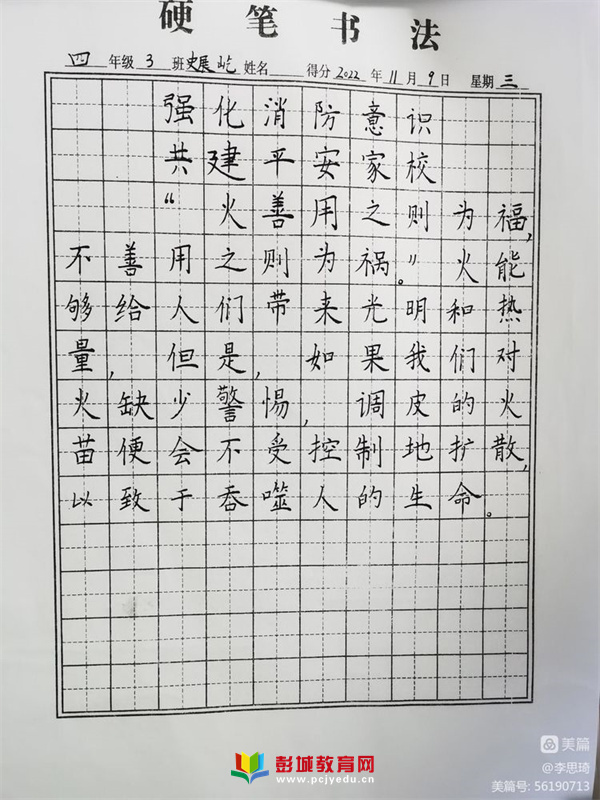 硬笔书法
四 年级 3 班 史展屹 姓名 得分 2022 年 11 月 9 日 星期 三
强化消防意识
共建平安家校
“火善用之则为福,
不善用之则为祸。”火能
够给人们带来光明和热
量,但是,如果我们对
火缺少警惕,调皮的火
苗便会不受控制地扩散,
以致于吞噬人的生命。
美篇
@李思琦
美篇号: 56190713
彭城教育网
www.pcjyedu.cn